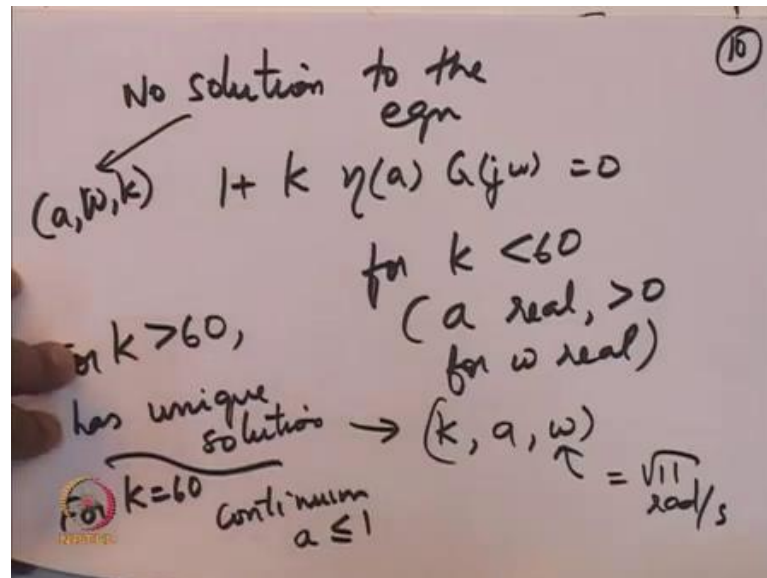 10
No solution to the
eqn
(a, ω, k) 1 + k η(a) G(jω) = 0
for k < 60
(a real, > 0
for ω real)
k > 60,
has unique
solution → (k, a, ω)
↑ = √11
rad/s
For k = 60 continuum
a ≤ 1
NPTEL